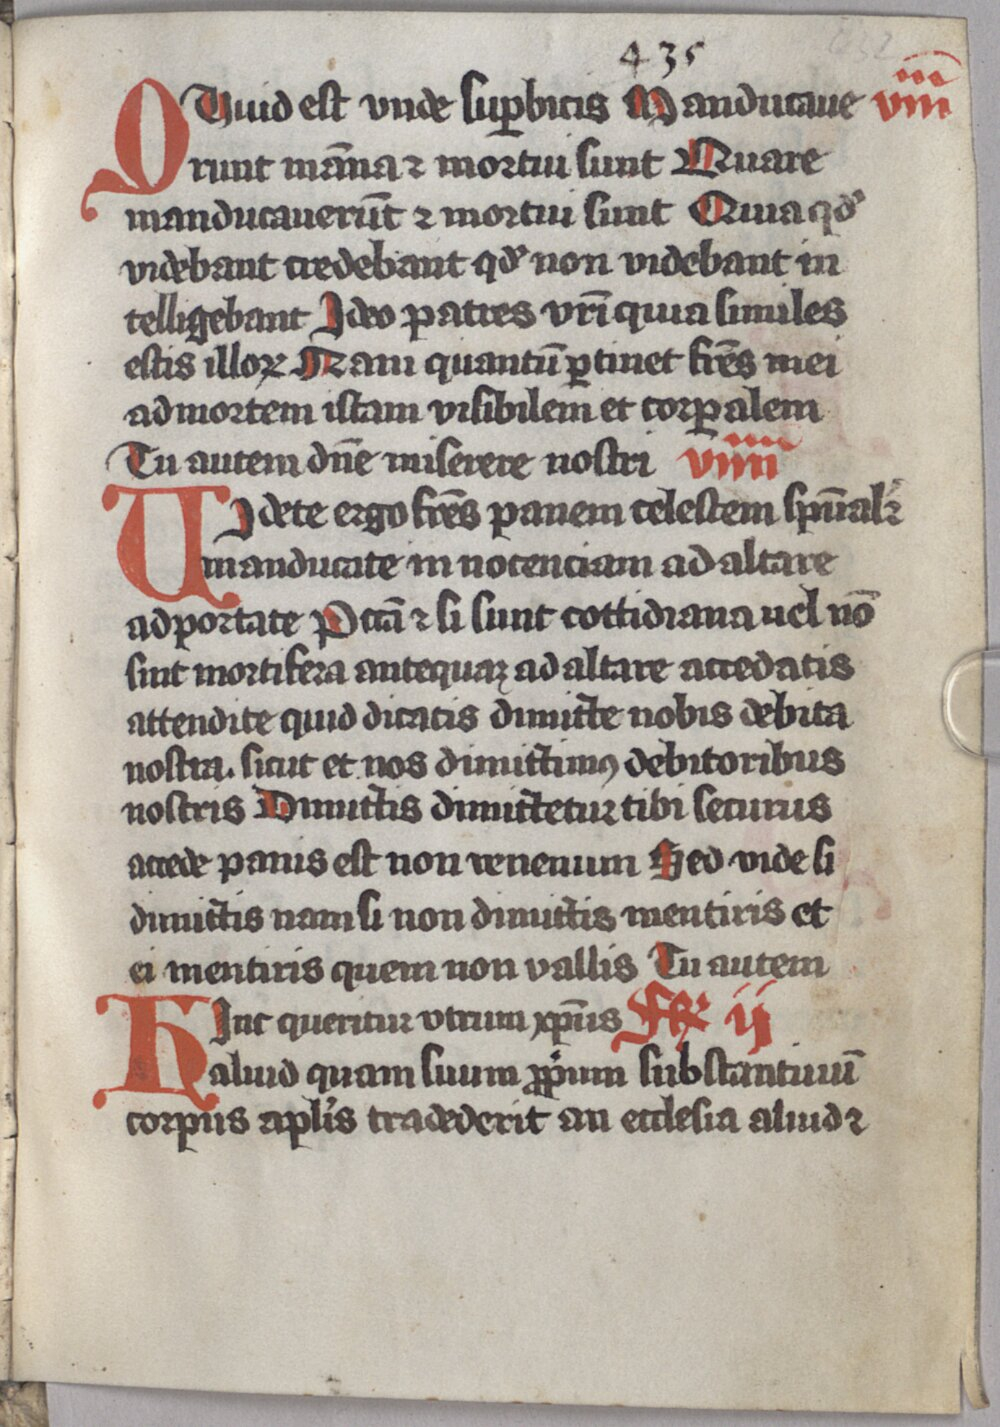 435
QUuid est vnde sup̱bitis Manducaue viii
runt ma̅na ⁊ mortui sunt Quare
manducauerūt ⁊ mortui sunt Quia qd̛
videbant credebant qd̛ non videbant in
telligebant Ideo patres vr̅i quia similes
estis illoꝝ Nam quantū ꝑtinet fr̅es mei
ad mortem istam visibilem et corꝑalem
Tu autem dn̅e miserere nostri viiii
VIdete ergo fr̅es panem celestem sp̅ualr̛
manducate in nocenciam ad altare
ad portate Pcca̅ ⁊ si sunt cottidiana uel no̅
sint mortifera antequaꝫ ad altare accedatis
attendite quid dicatis dimitte nobis debita
nostra. sicut et nos dimittimꝯ debitoribus
nostris Dimittis dimittetur tibi securus
accede panis est non venenum Sed vide si
dimittis nam si non dimittis mentiris et
ei mentiris quem non vallis Tu autem
HInc queritur vtrum xp̅us Fr̛ ij
aliud quam suum ꝓprium substantiuu̅
corpus apl̛is tradederit an ecclesia aliud ⁊